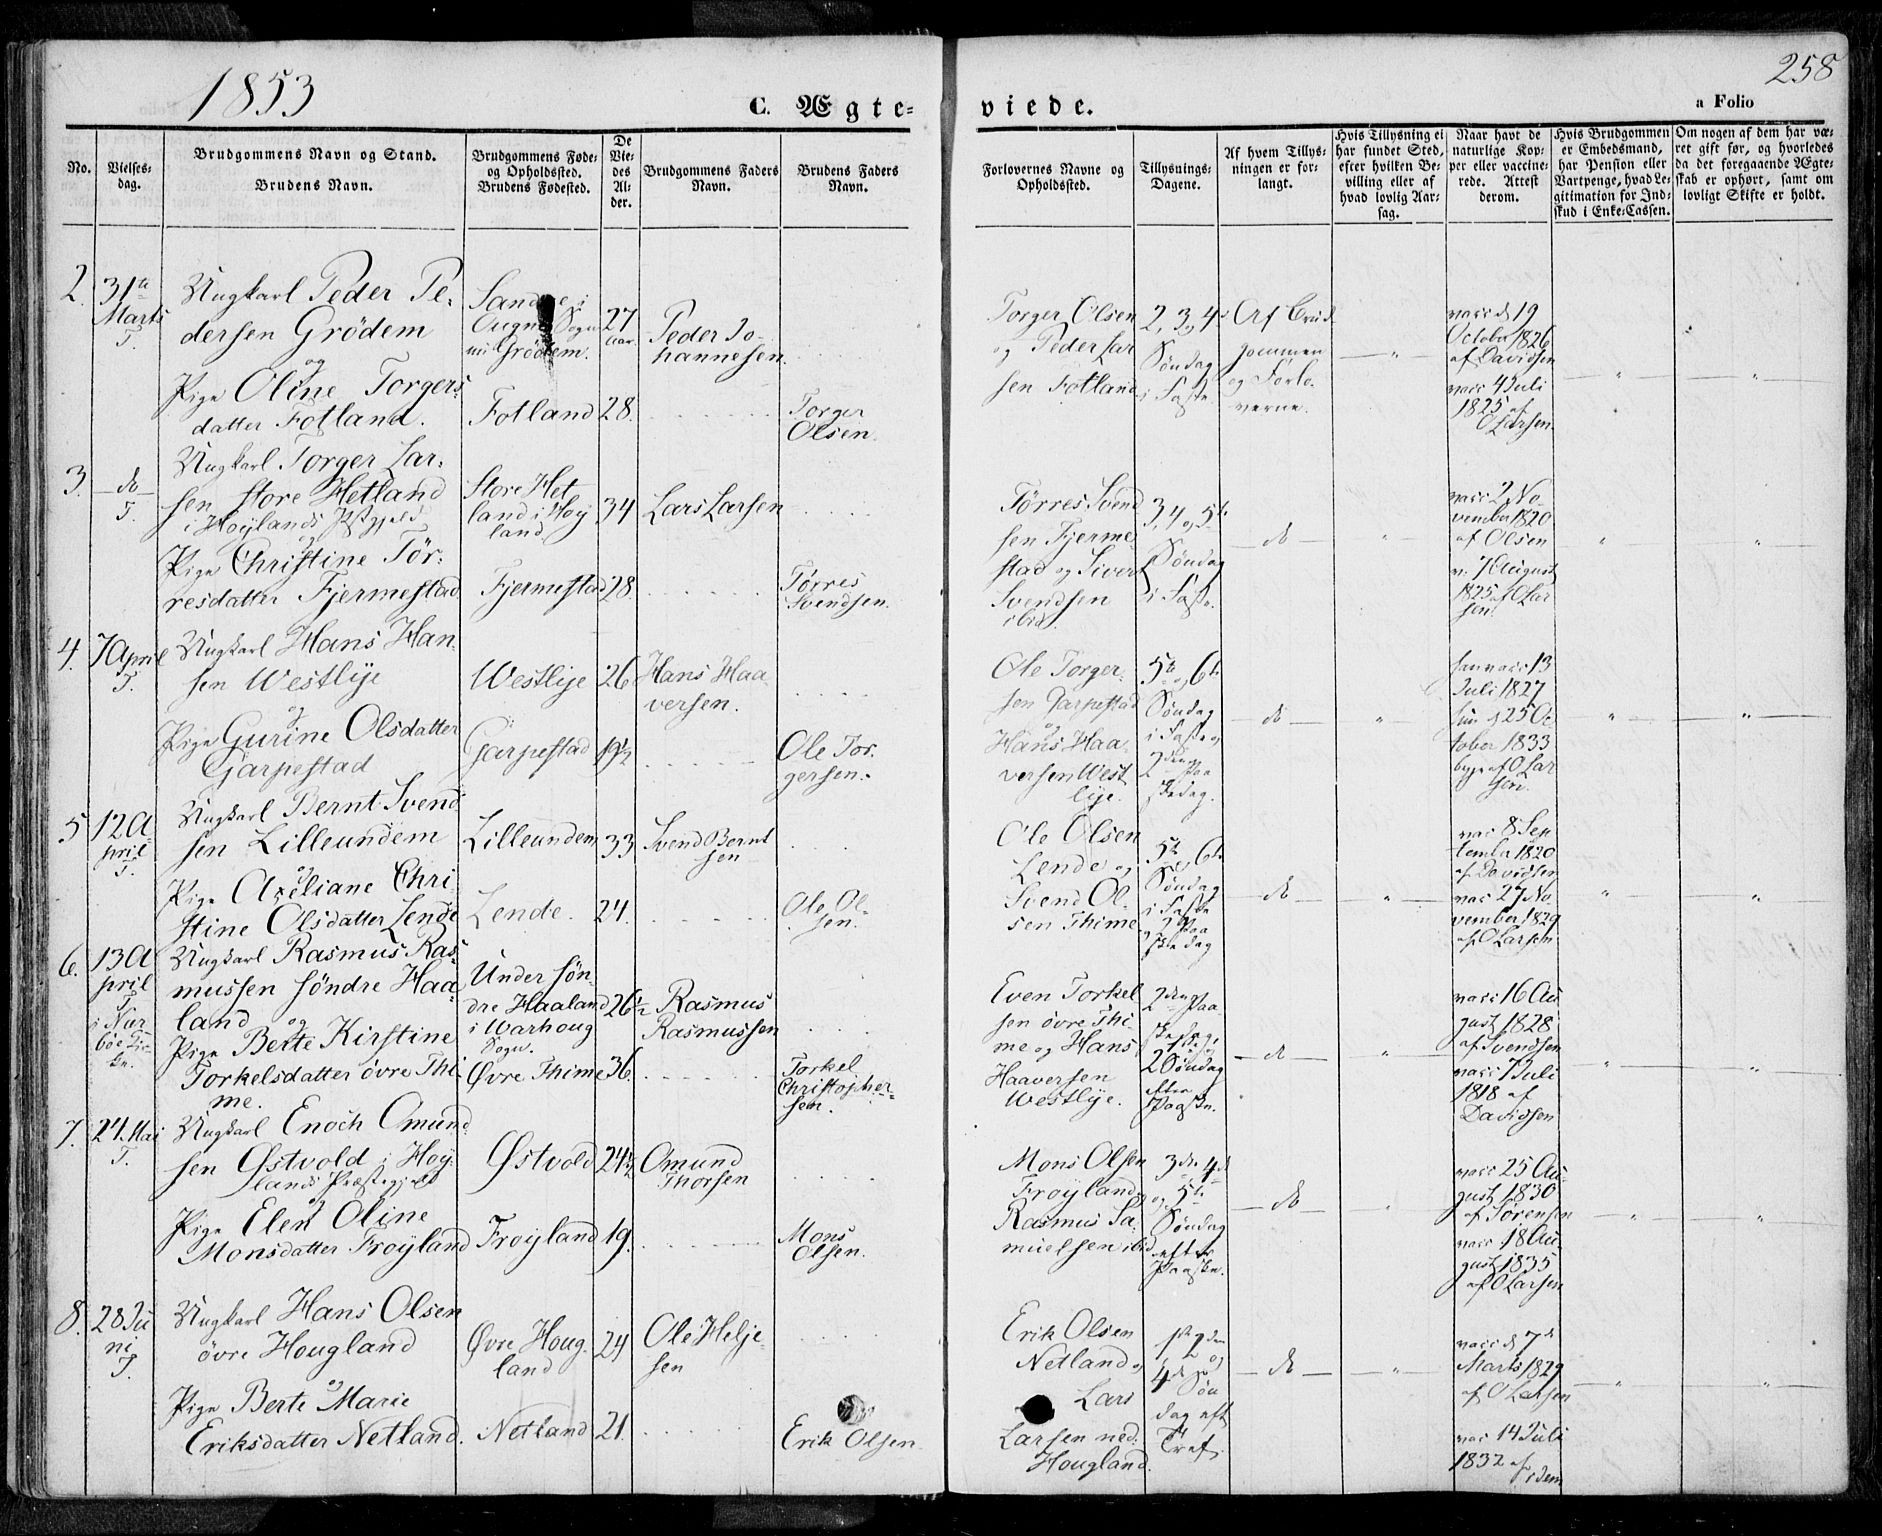 1853
258
C. Ægte=
viede.
a Folio
No.
Vielses-
dag.
Brudgommens Navn og Stand.
Brudens Navn.
Brudgommens Føde-
og Opholdssted.
Brudens Fødested.
De
Vie-
des
Al-
der.
Brudgommens Faders
Navn.
Brudens Faders
Navn.
Forlovernes Navne og
Opholdssted.
Tillysnings-
Dagene.
Af hvem Tillys-
ningen er for-
langt.
Hvis Tillysning ei
har fundet Sted,
efter hvilken Be-
villing eller af
hvad lovlig Aar-
sag.
Naar havt de
naturlige Kop-
per eller vaccine-
rede. Attest
derom.
Hvis Brudgommen
er Embedsmand,
har Pension eller
Vartpenge, hvad Le-
gitimation for Ind-
skud i Enke-Cassen.
Om nogen af dem har væ-
ret gift før, og hvorledes
da det foregaaende Ægte-
skab er ophørt, samt om
lovligt Skifte er holdt.
2.
31te
Marts
T.
Ungkarl Peder Pe-
dersen Grödem
og
Pige Oline Torgers-
datter Fotland.
Sogn
Grödem.
Fotland
27
Aar.
28.
Peder Jo-
hannesen.
Torger
Olsen.
Torger Olsen
og Peder Lar
sen Fotland
2, 3 og 4de
Søndag
i Faste.
Af Brud
gommen
og Forlo-
verne.
vacc d 19
October 1826
af Davidsen
vacc 4 Juli
1825 af
O Larsen.
3.
do
T.
Ungkarl Torger Lar-
sen store Hetland
i Høylands Pstgjeld
og
Pige Christine Tör-
resdatter Fjermestad
Store Het
land i Høy
land
Fjermestad
34
28
Lars Larsen
Tørres
Svendsen.
Tørres Svend
sen Fjerme-
stad og Sivert
Svendsen
ibid.
3, 4 og 5te
Søndag
i Faste.
do
vacc 2 No
vember 1820
af Olsen
v. 7 August
1825 af O Lar
sen.
4.
7 April
T.
Ungkarl Hans Han-
sen Westlije
og
Pige Gurine Olsdatter
Garpestad
Westlije
Garpestad
26
19½
Hans Haa-
versen.
Ole Tor-
gersen.
Ole Torger-
sen Garpestad
og
Hans Haa-
versen West
lije.
5te og 6te
Søndag
i Faste og
2den Paa
skedag.
do
13
Juli 1827
25 Oc
tober 1833
af O Lar
sen.
5
12 A
pril
T.
Ungkarl Bernt Svend
sen Lilleundem
og
Pige Axeliane Chri-
stine Olsdatter Lende
Lilleundem
Lende.
33
24.
Svend Bernt
sen
Ole Ol-
sen.
Ole Olsen
Lende og
Svend Ol-
sen Thime
5te og 6te
Søndag
i Faste
og 2 Paa
skedag
do
vac 8 Sep
tember 1820
af Davidsen
vac 27 No
vember 1829
af O Larsen
6.
13 A
pril
T.
i Nær-
bøe Kir-
ke.
Ungkarl Rasmus Ras-
mussen söndre Haa-
land og
Pige Berte Kirstine
Torkelsdatter övre Thi-
me.
Under sön
dre Haaland
i Warhoug
Sogn.
Øvre Thime
26½
36.
Rasmus
Rasmussen
Torkel
Christopher-
sen.
Even Torkel
sen övre Thi-
me og Hans
Haaversen
Westlije.
2den Paa-
skedag,
2 Søndag
efter
Paaske.
do
vacc 16 Au
gust 1828
af Svendsen
vacc 7 Juli
1818 af
Davidsen
7.
24 Mai
T.
Ungkarl Enoch Omund
sen Østvold i Høy
lands Præstegjeld
og
Pige Elen Oline
Monsdatter Frøyland
Østvold
Frøyland
24½
19.
Omund
Thorsen
Mons
Olsen.
Mons Olsen
Frøyland og
Rasmus Sa-
muelsen ibid
3de 4de
og 5te
Søndag
efter
Paaske.
do
vacc 25 Au-
gust 1830
af Sörensen
vacc 18 Au-
gust 1835
af O Larsen
8.
28 Ju
ni
T.
Ungkarl Hans Olsen
övre Hougland
og
Pige Berte Marie
Eriksdatter Netland.
Øvre Houg-
land
Netland
24
21.
Ole Helje-
sen
Erik Olsen.
Erik Olsen
Netland og
Lars
Larsen ned.
Hougland.
1ste 2den
og
4de Søn
dag eft
Tref.
do
vacc d 7de
Marts 1829
af O Larsen
vac 14 Juli
1832 af
idem